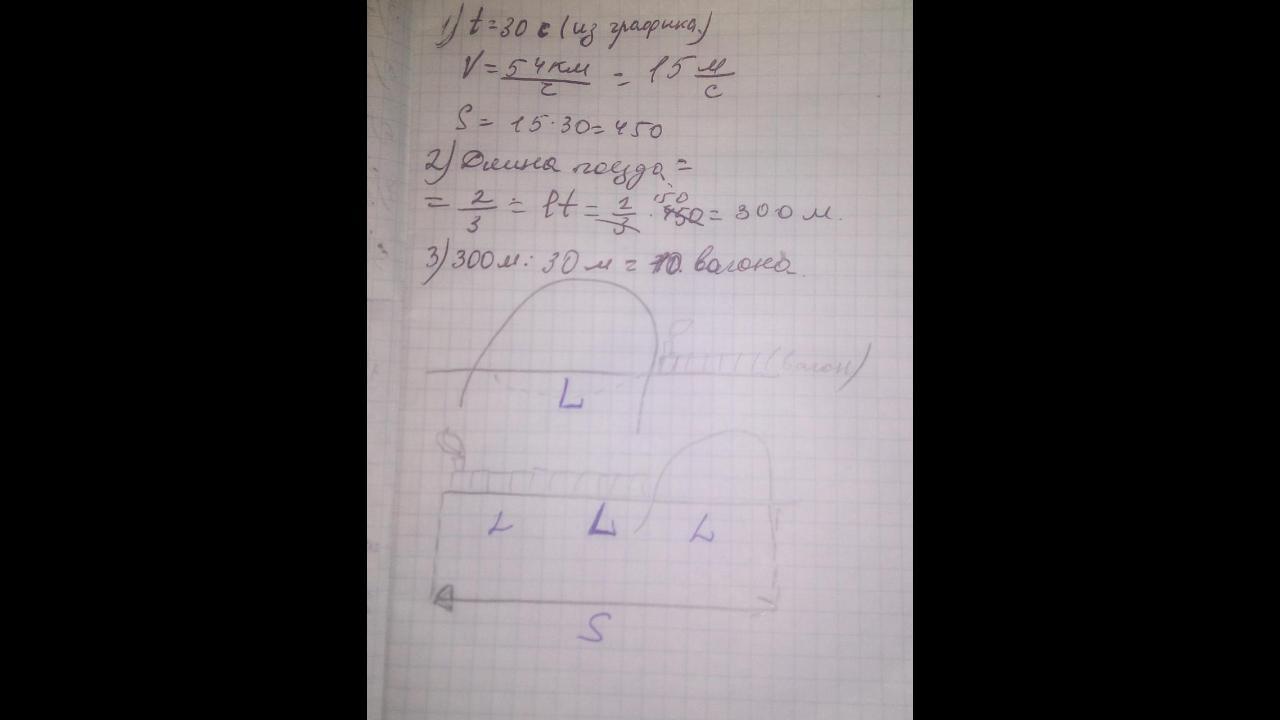 1) t=30 с (из графика)
V= 54 км/ч = 15 м/с
S= 15·30=450
2) Длина поезда =
= 2/3 = lt = 2/3 · 450 150 = 300 м.
3) 300 м : 30 м = 10 вагона
(вагон)
L
L L L
S